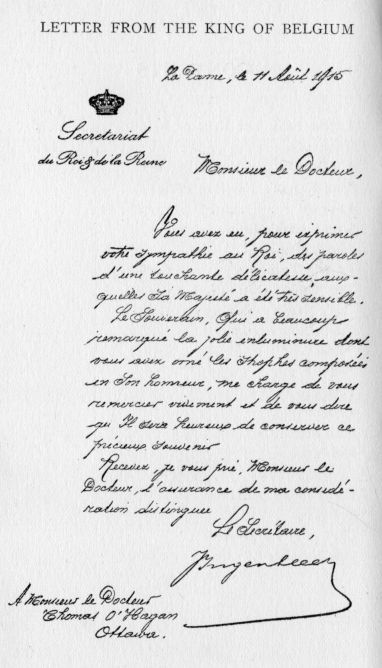 LETTER FROM THE KING OF BELGIUM
La Panne, le 11 Août 1915
Secretariat
du Roi & de la Reine
Monsieur le Docteur,
Vous avez eu, pour exprimer
votre sympathie au Roi, des paroles
d'une touchante délicatesse, aux-
quelles Sa Majesté a été très sensible.
Le Souverain, Qui a beaucoup
remarqué la jolie enluminure dont
vous avez orné les strophes composées
en Son honneur, me charge de vous
remercier vivement et de vous dire
qu'Il sera heureux de conserver ce
précieux souvenir
Recevez, je vous prie, Monsieur le
Docteur, l'assurance de ma considé-
ration distinguée
Le Secrétaire,
A Monsieur le Docteur
Thomas O'Hagan
Ottawa.